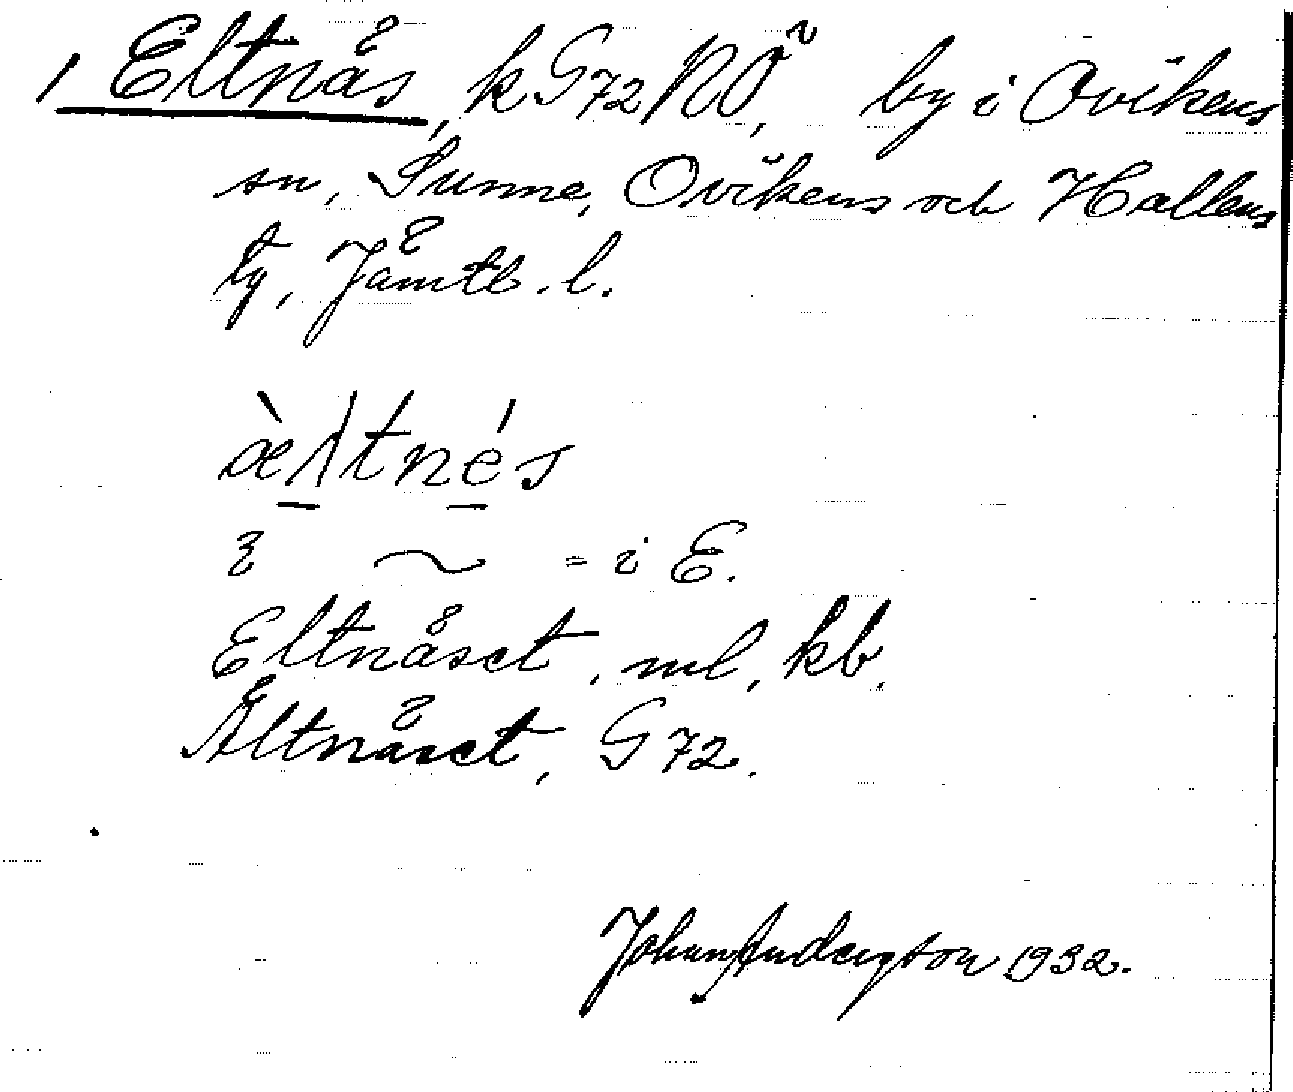 1 Eltnäs, k G72 NÖ, by i Ovikens
sn, Sunne, Ovikens och Hallens
tg, Jämtl. l.
æ̀ltnés
i ~ = i E.
Eltnäset, ml, kb.
Ältnäset, G72.
Johan Anderzson 1932.